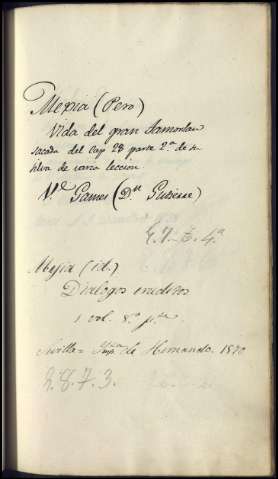 Mexia (Pero)
Vida del gran Tamorlan
sacada del Cap 28 parte 2.ª de su
silva de varia leccion.
V.e Games (D.n Gutierre)
E.1. - 6. 4.ª
Mejia (id.)
Dialogos eruditos
1 vol. 8.º p.ta
Sevilla = Imp. de Hernando. 1570
2. 8. 7. 3.